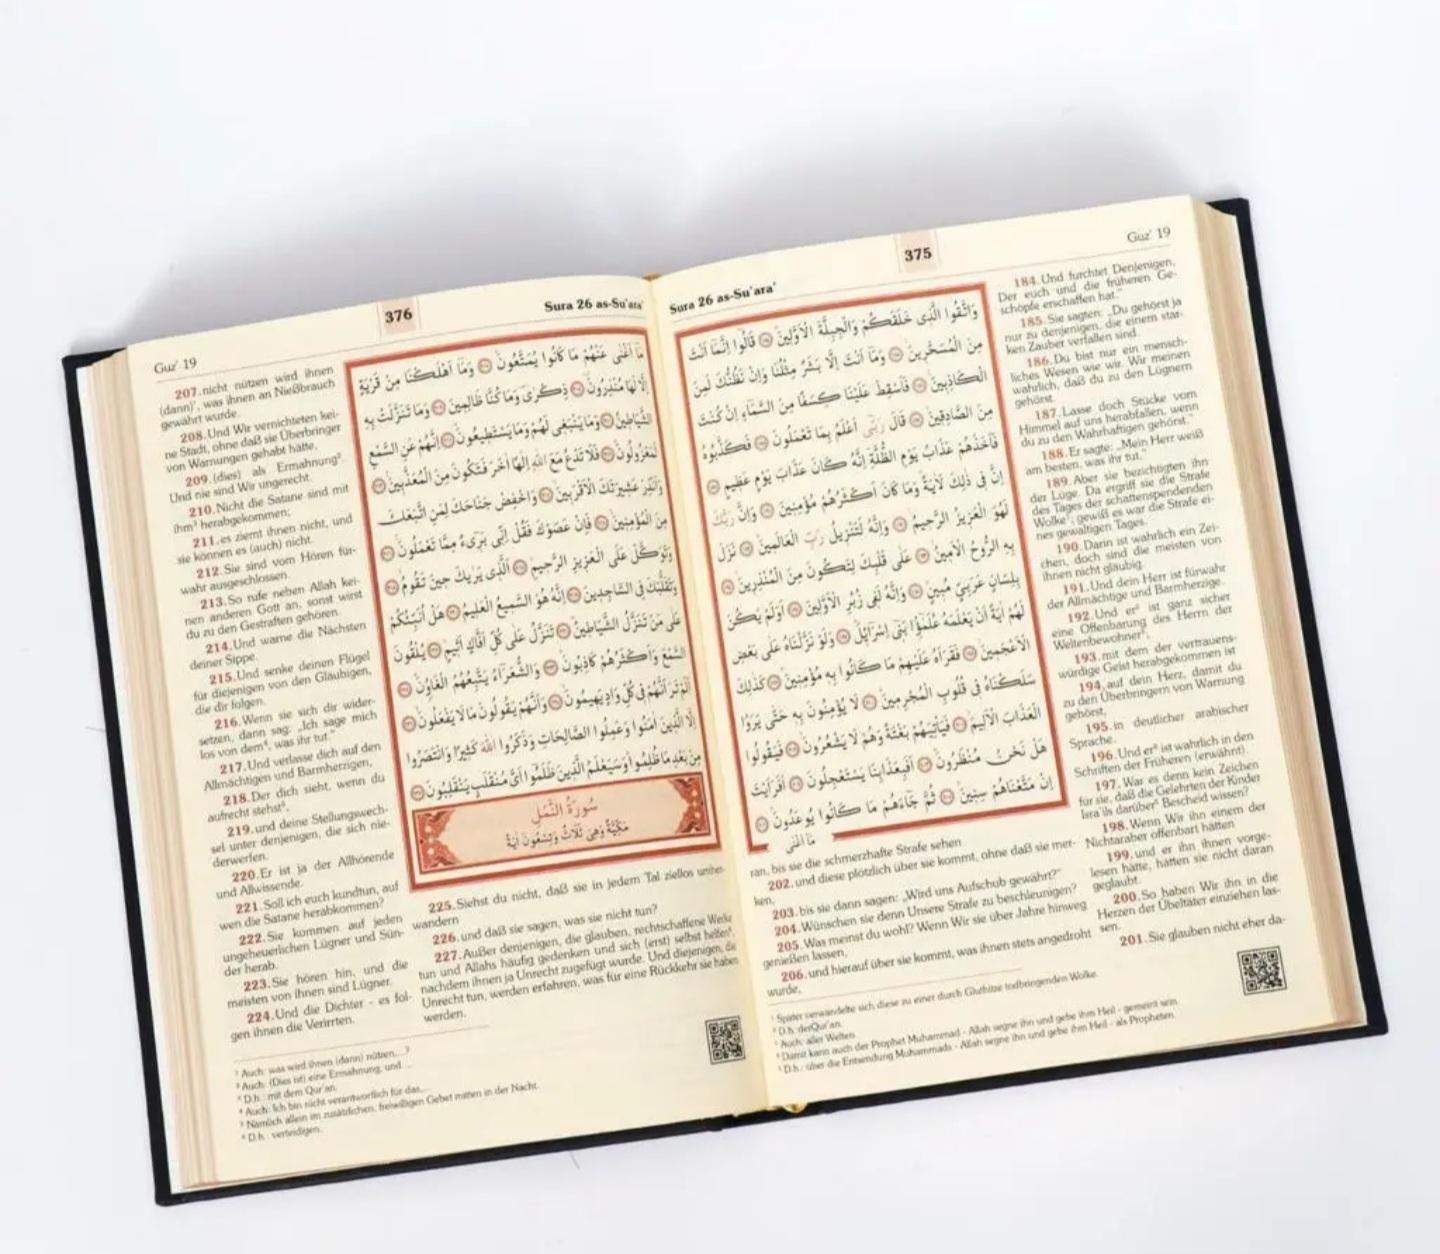 375
Guz' 19
Sura 26 as-Su'ara'
وَاتَّقُوا الَّذٖى خَلَقَكُمْ وَالْجِبِلَّةَ الْاَوَّلٖينَ ﴿١٨٤﴾ قَالُٓوا اِنَّمَٓا اَنْتَ
مِنَ الْمُسَحَّرٖينَ ﴿١٨٥﴾ وَمَٓا اَنْتَ اِلَّا بَشَرٌ مِثْلُنَا وَاِنْ نَظُنُّكَ لَمِنَ
الْكَاذِبٖينَ ﴿١٨٦﴾ فَاَسْقِطْ عَلَيْنَا كِسَفًا مِنَ السَّمَٓاءِ اِنْ كُنْتَ
مِنَ الصَّادِقٖينَ ﴿١٨٧﴾ قَالَ رَبّٖٓى اَعْلَمُ بِمَا تَعْمَلُونَ ﴿١٨٨﴾ فَكَذَّبُوهُ
فَاَخَذَهُمْ عَذَابُ يَوْمِ الظُّلَّةِ اِنَّهُ كَانَ عَذَابَ يَوْمٍ عَظٖيمٍ ﴿١٨٩﴾
اِنَّ فٖى ذٰلِكَ لَاٰيَةً وَمَا كَانَ اَكْثَرُهُمْ مُؤْمِنٖينَ ﴿١٩٠﴾ وَاِنَّ رَبَّكَ
لَهُوَ الْعَزٖيزُ الرَّحٖيمُ ﴿١٩١﴾ وَاِنَّهُ لَتَنْزٖيلُ رَبِّ الْعَالَمٖينَ ﴿١٩٢﴾ نَزَلَ
بِهِ الرُّوحُ الْاَمٖينُ ﴿١٩٣﴾ عَلٰى قَلْبِكَ لِتَكُونَ مِنَ الْمُنْذِرٖينَ ﴿١٩٤﴾
بِلِسَانٍ عَرَبِىٍّ مُبٖينٍ ﴿١٩٥﴾ وَاِنَّهُ لَفٖى زُبُرِ الْاَوَّلٖينَ ﴿١٩٦﴾ اَوَلَمْ يَكُنْ
لَهُمْ اٰيَةً اَنْ يَعْلَمَهُ عُلَمٰٓؤُا بَنٖٓى اِسْرَٓائٖلَ ﴿١٩٧﴾ وَلَوْ نَزَّلْنَاهُ عَلٰى بَعْضِ
الْاَعْجَمٖينَ ﴿١٩٨﴾ فَقَرَاَهُ عَلَيْهِمْ مَا كَانُوا بِهٖ مُؤْمِنٖينَ ﴿١٩٩﴾ كَذٰلِكَ
سَلَكْنَاهُ فٖى قُلُوبِ الْمُجْرِمٖينَ ﴿٢٠٠﴾ لَا يُؤْمِنُونَ بِهٖ حَتّٰى يَرَوُا
الْعَذَابَ الْاَلٖيمَ ﴿٢٠١﴾ فَيَاْتِيَهُمْ بَغْتَةً وَهُمْ لَا يَشْعُرُونَ ﴿٢٠٢﴾ فَيَقُولُوا
هَلْ نَحْنُ مُنْظَرُونَ ﴿٢٠٣﴾ اَفَبِعَذَابِنَا يَسْتَعْجِلُونَ ﴿٢٠٤﴾ اَفَرَاَيْتَ
اِنْ مَتَّعْنَاهُمْ سِنٖينَ ﴿٢٠٥﴾ ثُمَّ جَٓاءَهُمْ مَا كَانُوا يُوعَدُونَ ﴿٢٠٦﴾
مَٓا اَغْنٰى
184. Und fürchtet Denjenigen,
Der euch und die früheren Ge-
schöpfe erschaffen hat."
185. Sie sagten: „Du gehörst ja
nur zu denjenigen, die einem star-
ken Zauber verfallen sind.
186. Du bist nur ein mensch-
liches Wesen wie wir. Wir meinen
wahrlich, daß du zu den Lügnern
gehörst.
187. Lasse doch Stücke vom
Himmel auf uns herabfallen, wenn
du zu den Wahrhaftigen gehörst."
188. Er sagte: „Mein Herr weiß
am besten, was ihr tut."
189. Aber sie bezichtigten ihn
der Lüge. Da ergriff sie die Strafe
des Tages der schattenspendenden
Wolke¹; gewiß es war die Strafe ei-
nes gewaltigen Tages.
190. Darin ist wahrlich ein Zei-
chen, doch sind die meisten von
ihnen nicht gläubig.
191. Und dein Herr ist fürwahr
der Allmächtige und Barmherzige.
192. Und er² ist ganz sicher
eine Offenbarung des Herrn der
Weltenbewohner³;
193. mit dem der vertrauens-
würdige Geist herabgekommen ist
194. auf dein Herz, damit du
zu den Überbringern von Warnung
gehörst,
195. in deutlicher arabischer
Sprache.
196. Und er⁴ ist wahrlich in den
Schriften der Früheren (erwähnt).
197. War es denn kein Zeichen
für sie, daß die Gelehrten der Kinder
Isra'ils darüber⁵ Bescheid wissen?
198. Wenn Wir ihn einem der
Nichtaraber offenbart hätten
199. und er ihn ihnen vorge-
lesen hätte, hätten sie nicht daran
geglaubt.
200. So haben Wir ihn in die
Herzen der Übeltäter einziehen las-
sen.
201. Sie glauben nicht eher da-
ran, bis sie die schmerzhafte Strafe sehen
202. und diese plötzlich über sie kommt, ohne daß sie mer-
ken,
203. bis sie dann sagen: „Wird uns Aufschub gewährt?"
204. Wünschen sie denn Unsere Strafe zu beschleunigen?
205. Was meinst du wohl? Wenn Wir sie über Jahre hinweg
genießen lassen,
206. und hierauf über sie kommt, was ihnen stets angedroht
wurde,
¹ Später verwandelte sich diese zu einer durch Gluthitze todbringenden Wolke.
² D.h. der Qur'an.
³ Auch: aller Welten.
⁴ Damit kann auch der Prophet Muhammad - Allah segne ihn und gebe ihm Heil - gemeint sein.
⁵ D.h.: über die Entsendung Muhammads - Allah segne ihn und gebe ihm Heil - als Propheten.
376
Guz' 19
Sura 26 as-Su'ara'
مَٓا اَغْنٰى عَنْهُمْ مَا كَانُوا يُمَتَّعُونَ ﴿٢٠٧﴾ وَمَٓا اَهْلَكْنَا مِنْ قَرْيَةٍ
اِلَّا لَهَا مُنْذِرُونَ ﴿٢٠٨﴾ ذِكْرٰى وَمَا كُنَّا ظَالِمٖينَ ﴿٢٠٩﴾ وَمَا تَنَزَّلَتْ بِهِ
الشَّيَاطٖينُ ﴿٢١٠﴾ وَمَا يَنْبَغٖى لَهُمْ وَمَا يَسْتَطٖيعُونَ ﴿٢١١﴾ اِنَّهُمْ عَنِ السَّمْعِ
لَمَعْزُولُونَ ﴿٢١٢﴾ فَلَا تَدْعُ مَعَ اللّٰهِ اِلٰهًا اٰخَرَ فَتَكُونَ مِنَ الْمُعَذَّبٖينَ ﴿٢١٣﴾
وَاَنْذِرْ عَشٖيرَتَكَ الْاَقْرَبٖينَ ﴿٢١٤﴾ وَاخْفِضْ جَنَاحَكَ لِمَنِ اتَّبَعَكَ
مِنَ الْمُؤْمِنٖينَ ﴿٢١٥﴾ فَاِنْ عَصَوْكَ فَقُلْ اِنّٖى بَرٖٓىءٌ مِمَّا تَعْمَلُونَ ﴿٢١٦﴾
وَتَوَكَّلْ عَلَى الْعَزٖيزِ الرَّحٖيمِ ﴿٢١٧﴾ اَلَّذٖى يَرٰيكَ حٖينَ تَقُومُ ﴿٢١٨﴾
وَتَقَلُّبَكَ فِى السَّاجِدٖينَ ﴿٢١٩﴾ اِنَّهُ هُوَ السَّمٖيعُ الْعَلٖيمُ ﴿٢٢٠﴾ هَلْ اُنَبِّئُكُمْ
عَلٰى مَنْ تَنَزَّلُ الشَّيَاطٖينُ ﴿٢٢١﴾ تَنَزَّلُ عَلٰى كُلِّ اَفَّاكٍ اَثٖيمٍ ﴿٢٢٢﴾ يُلْقُونَ
السَّمْعَ وَاَكْثَرُهُمْ كَاذِبُونَ ﴿٢٢٣﴾ وَالشُّعَرَٓاءُ يَتَّبِعُهُمُ الْغَاوُنَ ﴿٢٢٤﴾
اَلَمْ تَرَ اَنَّهُمْ فٖى كُلِّ وَادٍ يَهٖيمُونَ ﴿٢٢٥﴾ وَاَنَّهُمْ يَقُولُونَ مَا لَا يَفْعَلُونَ ﴿٢٢٦﴾
اِلَّا الَّذٖينَ اٰمَنُوا وَعَمِلُوا الصَّالِحَاتِ وَذَكَرُوا اللّٰهَ كَثٖيرًا وَانْتَصَرُوا
مِنْ بَعْدِ مَا ظُلِمُوا وَسَيَعْلَمُ الَّذٖينَ ظَلَمُٓوا اَىَّ مُنْقَلَبٍ يَنْقَلِبُونَ ﴿٢٢٧﴾
سُورَةُ النَّمْلِ
مَكِّيَّةٌ وَهِىَ ثَلَاثٌ وَتِسْعُونَ اٰيَةً
207. nicht nützen wird ihnen
(dann)¹, was ihnen an Nießbrauch
gewährt wurde.
208. Und Wir vernichteten kei-
ne Stadt, ohne daß sie Überbringer
von Warnungen gehabt hätte,
209. (dies) als Ermahnung².
Und nie sind Wir ungerecht.
210. Nicht die Satane sind mit
ihm³ herabgekommen;
211. es ziemt ihnen nicht, und
sie können es (auch) nicht.
212. Sie sind vom Hören für-
wahr ausgeschlossen.
213. So rufe neben Allah kei-
nen anderen Gott an, sonst wirst
du zu den Gestraften gehören.
214. Und warne die Nächsten
deiner Sippe.
215. Und senke deinen Flügel
für diejenigen von den Gläubigen,
die dir folgen.
216. Wenn sie sich dir wider-
setzen, dann sag: „Ich sage mich
los von dem⁴, was ihr tut."
217. Und verlasse dich auf den
Allmächtigen und Barmherzigen,
218. Der dich sieht, wenn du
aufrecht stehst⁵,
219. und deine Stellungswech-
sel unter denjenigen, die sich nie-
derwerfen.
220. Er ist ja der Allhörende
und Allwissende.
221. Soll ich euch kundtun, auf
wen die Satane herabkommen?
222. Sie kommen auf jeden
ungeheuerlichen Lügner und Sün-
der herab.
223. Sie hören hin, und die
meisten von ihnen sind Lügner.
224. Und die Dichter - es fol-
gen ihnen die Verirrten.
225. Siehst du nicht, daß sie in jedem Tal ziellos umher-
wandern
226. und daß sie sagen, was sie nicht tun?
227. Außer denjenigen, die glauben, rechtschaffene Werke
tun und Allahs häufig gedenken und sich (erst) selbst helfen⁶,
nachdem ihnen ja Unrecht zugefügt wurde. Und diejenigen, die
Unrecht tun, werden erfahren, was für eine Rückkehr sie haben
werden.
¹ Auch: was wird ihnen (dann) nützen,...?
² Auch: (Dies ist) eine Ermahnung, und ...
³ D.h.: mit dem Qur'an.
⁴ Auch: Ich bin nicht verantwortlich für das,...
⁵ Nämlich allein im zusätzlichen, freiwilligen Gebet mitten in der Nacht.
⁶ D.h.: verteidigen.